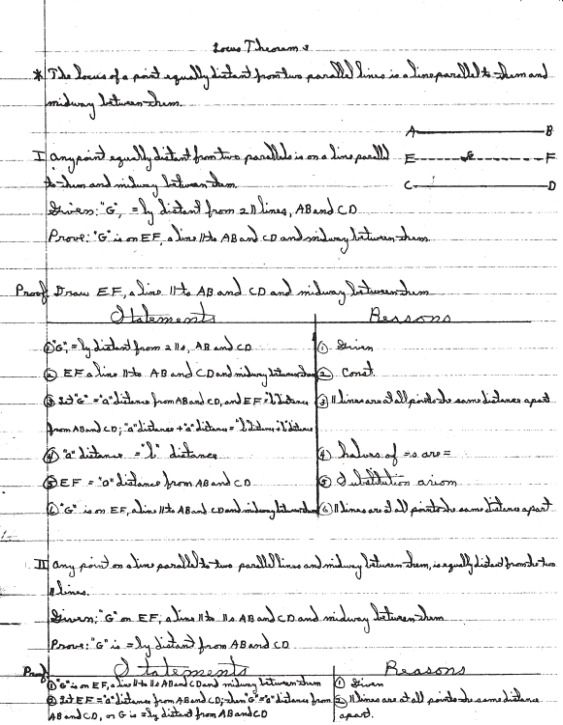 Locus Theorem s
* The locus of a point equally distant from two parallel lines is a line parallel to them and
midway between them.
A B
I any point equally distant from two parallels is on a line parallel
E G F
to them and midway between them.
C D
Given: "G", = ly distant from 2 || lines, AB and CD
Prove: "G" is on EF, a line || to AB and CD and midway between them.
Proof Draw EF, a line || to AB and CD and midway between them
Statements Reasons
① "G", = ly distant from 2 ||s, AB and CD ① Given
② EF a line || to AB and CD and midway between them ② Const.
③ Let "G" = "a" distance from AB and CD, and EF = "b" distance ③ || lines are at all points the same distance apart
from AB and CD; "a" distance + "a" distance = "b" distance + "b" distance
④ "a" distance = "b" distance ④ halves of =s are =
⑤ EF = "a" distance from AB and CD ⑤ Substitution axiom
⑥ "G" is on EF, a line || to AB and CD and midway between them ⑥ || lines are at all points the same distance apart
II any point on a line parallel to two parallel lines and midway between them, is equally distant from the two
|| lines.
Given: "G" on EF, a line || to ||s AB and CD and midway between them
Prove: "G" is = ly distant from AB and CD
Proof Statements Reasons
① "G" is on EF, a line || to ||s AB and CD and midway between them ① Given
② Let EF = "a" distance from AB and CD; then "G" = "a" distance from ② || lines are at all points the same distance
AB and CD, or G is = ly distant from AB and CD apart.